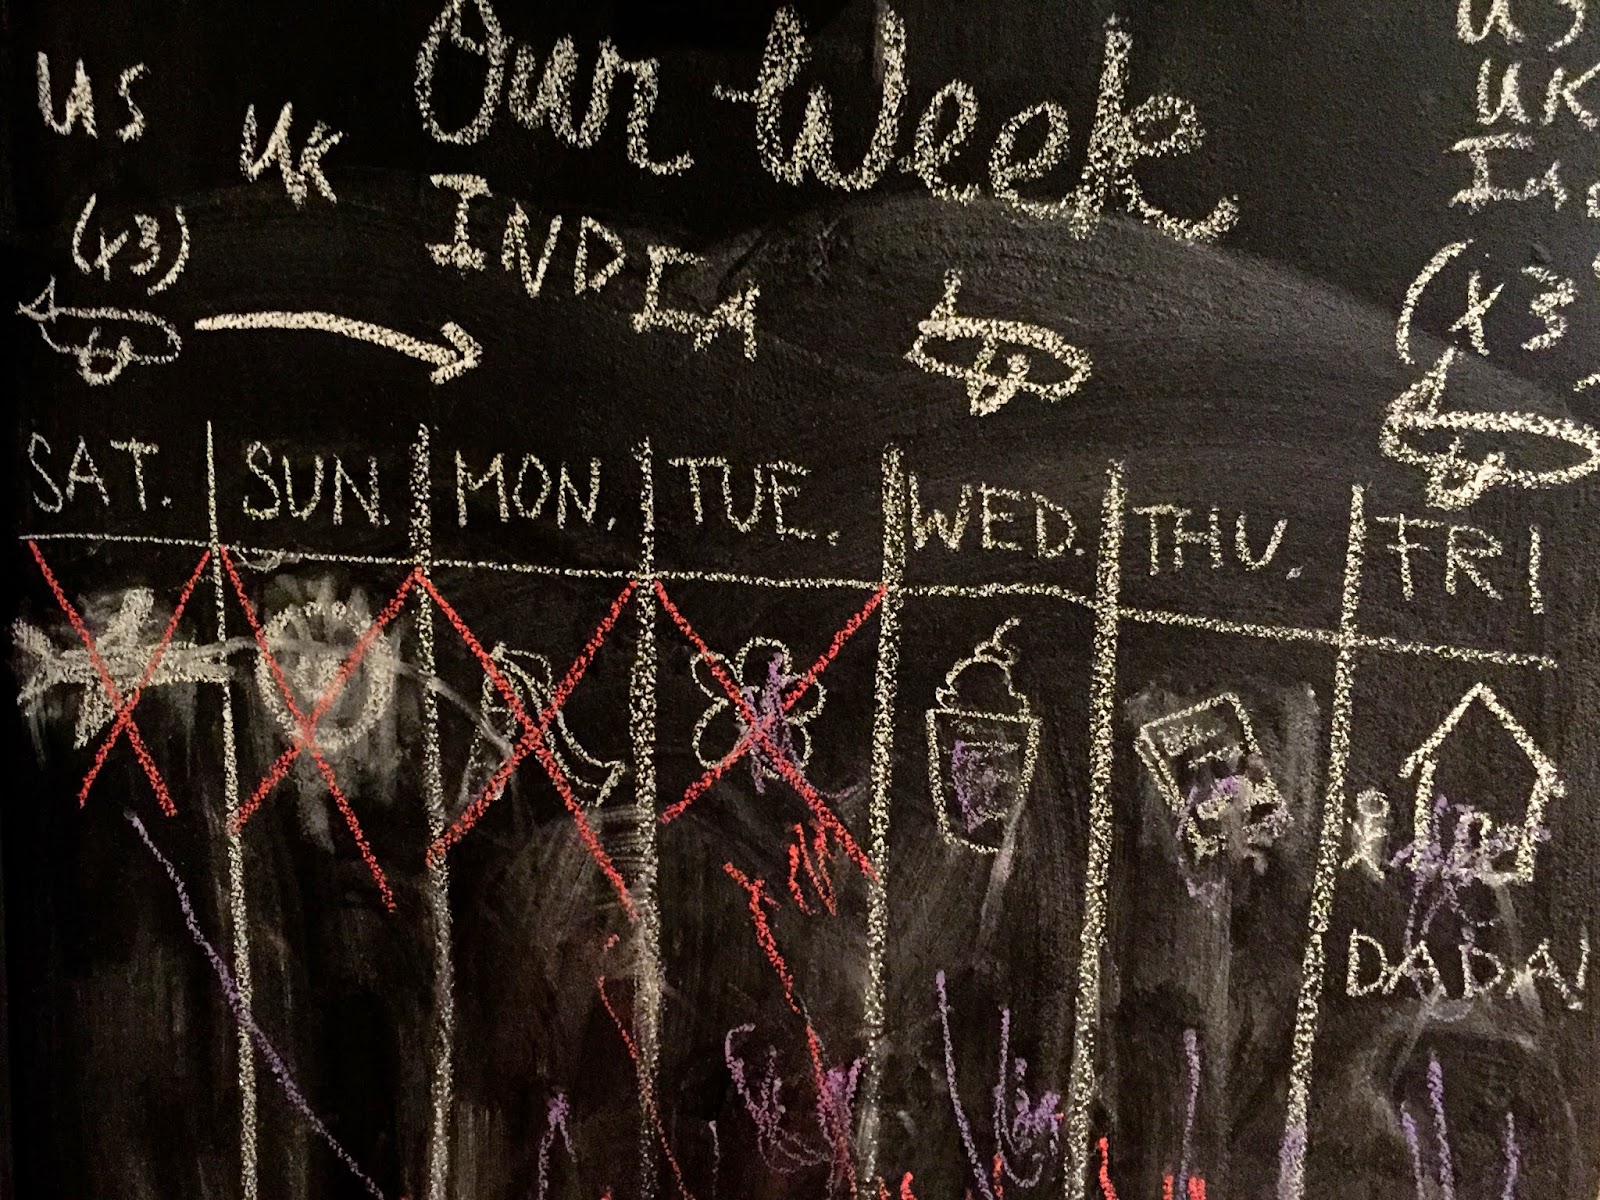 Our Week
US
UK
INDIA
(x3)
US
UK
(x3
SAT. SUN. MON. TUE. WED. THU. FRI
DADA